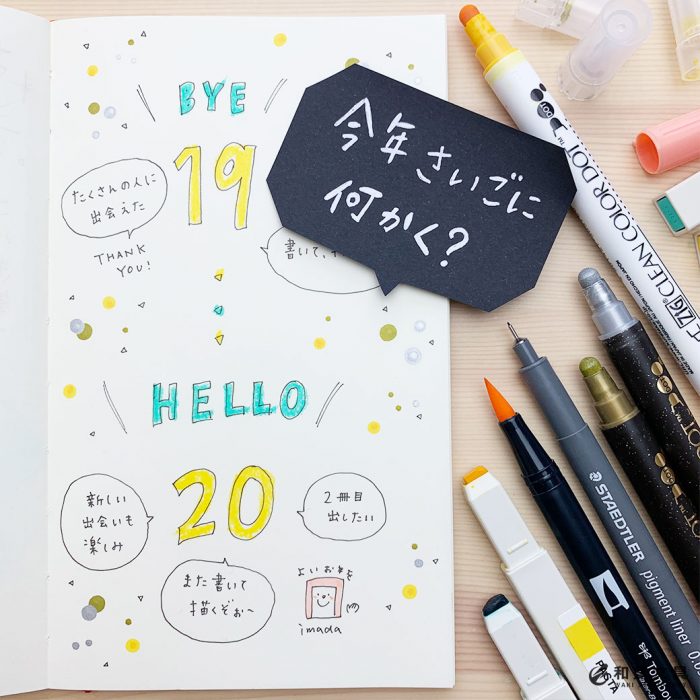 BYE
19
たくさんの人に
出会えた
THANK
YOU!
書いて、
今年さいごに
何かく?
HELLO
20
新しい
出会いも
楽しみ
2冊目
出したい
また書いて
描くぞぉ〜
よいお年を
imada
ZIG CLEAN COLOR DOT
STAEDTLER
pigment liner 0.
Tombow